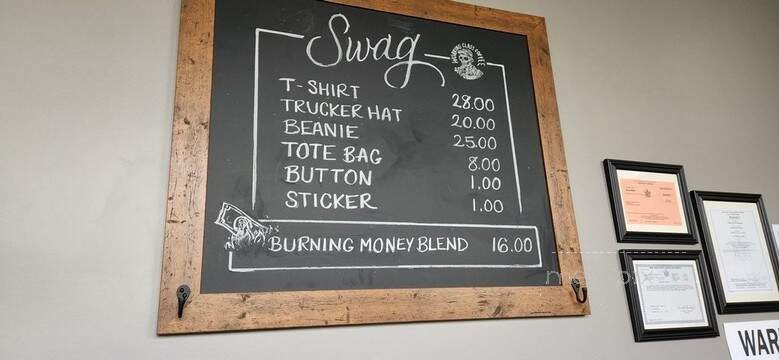 Swag
T-SHIRT 28.00
TRUCKER HAT 20.00
BEANIE 25.00
TOTE BAG 8.00
BUTTON 1.00
STICKER 1.00
BURNING MONEY BLEND 16.00